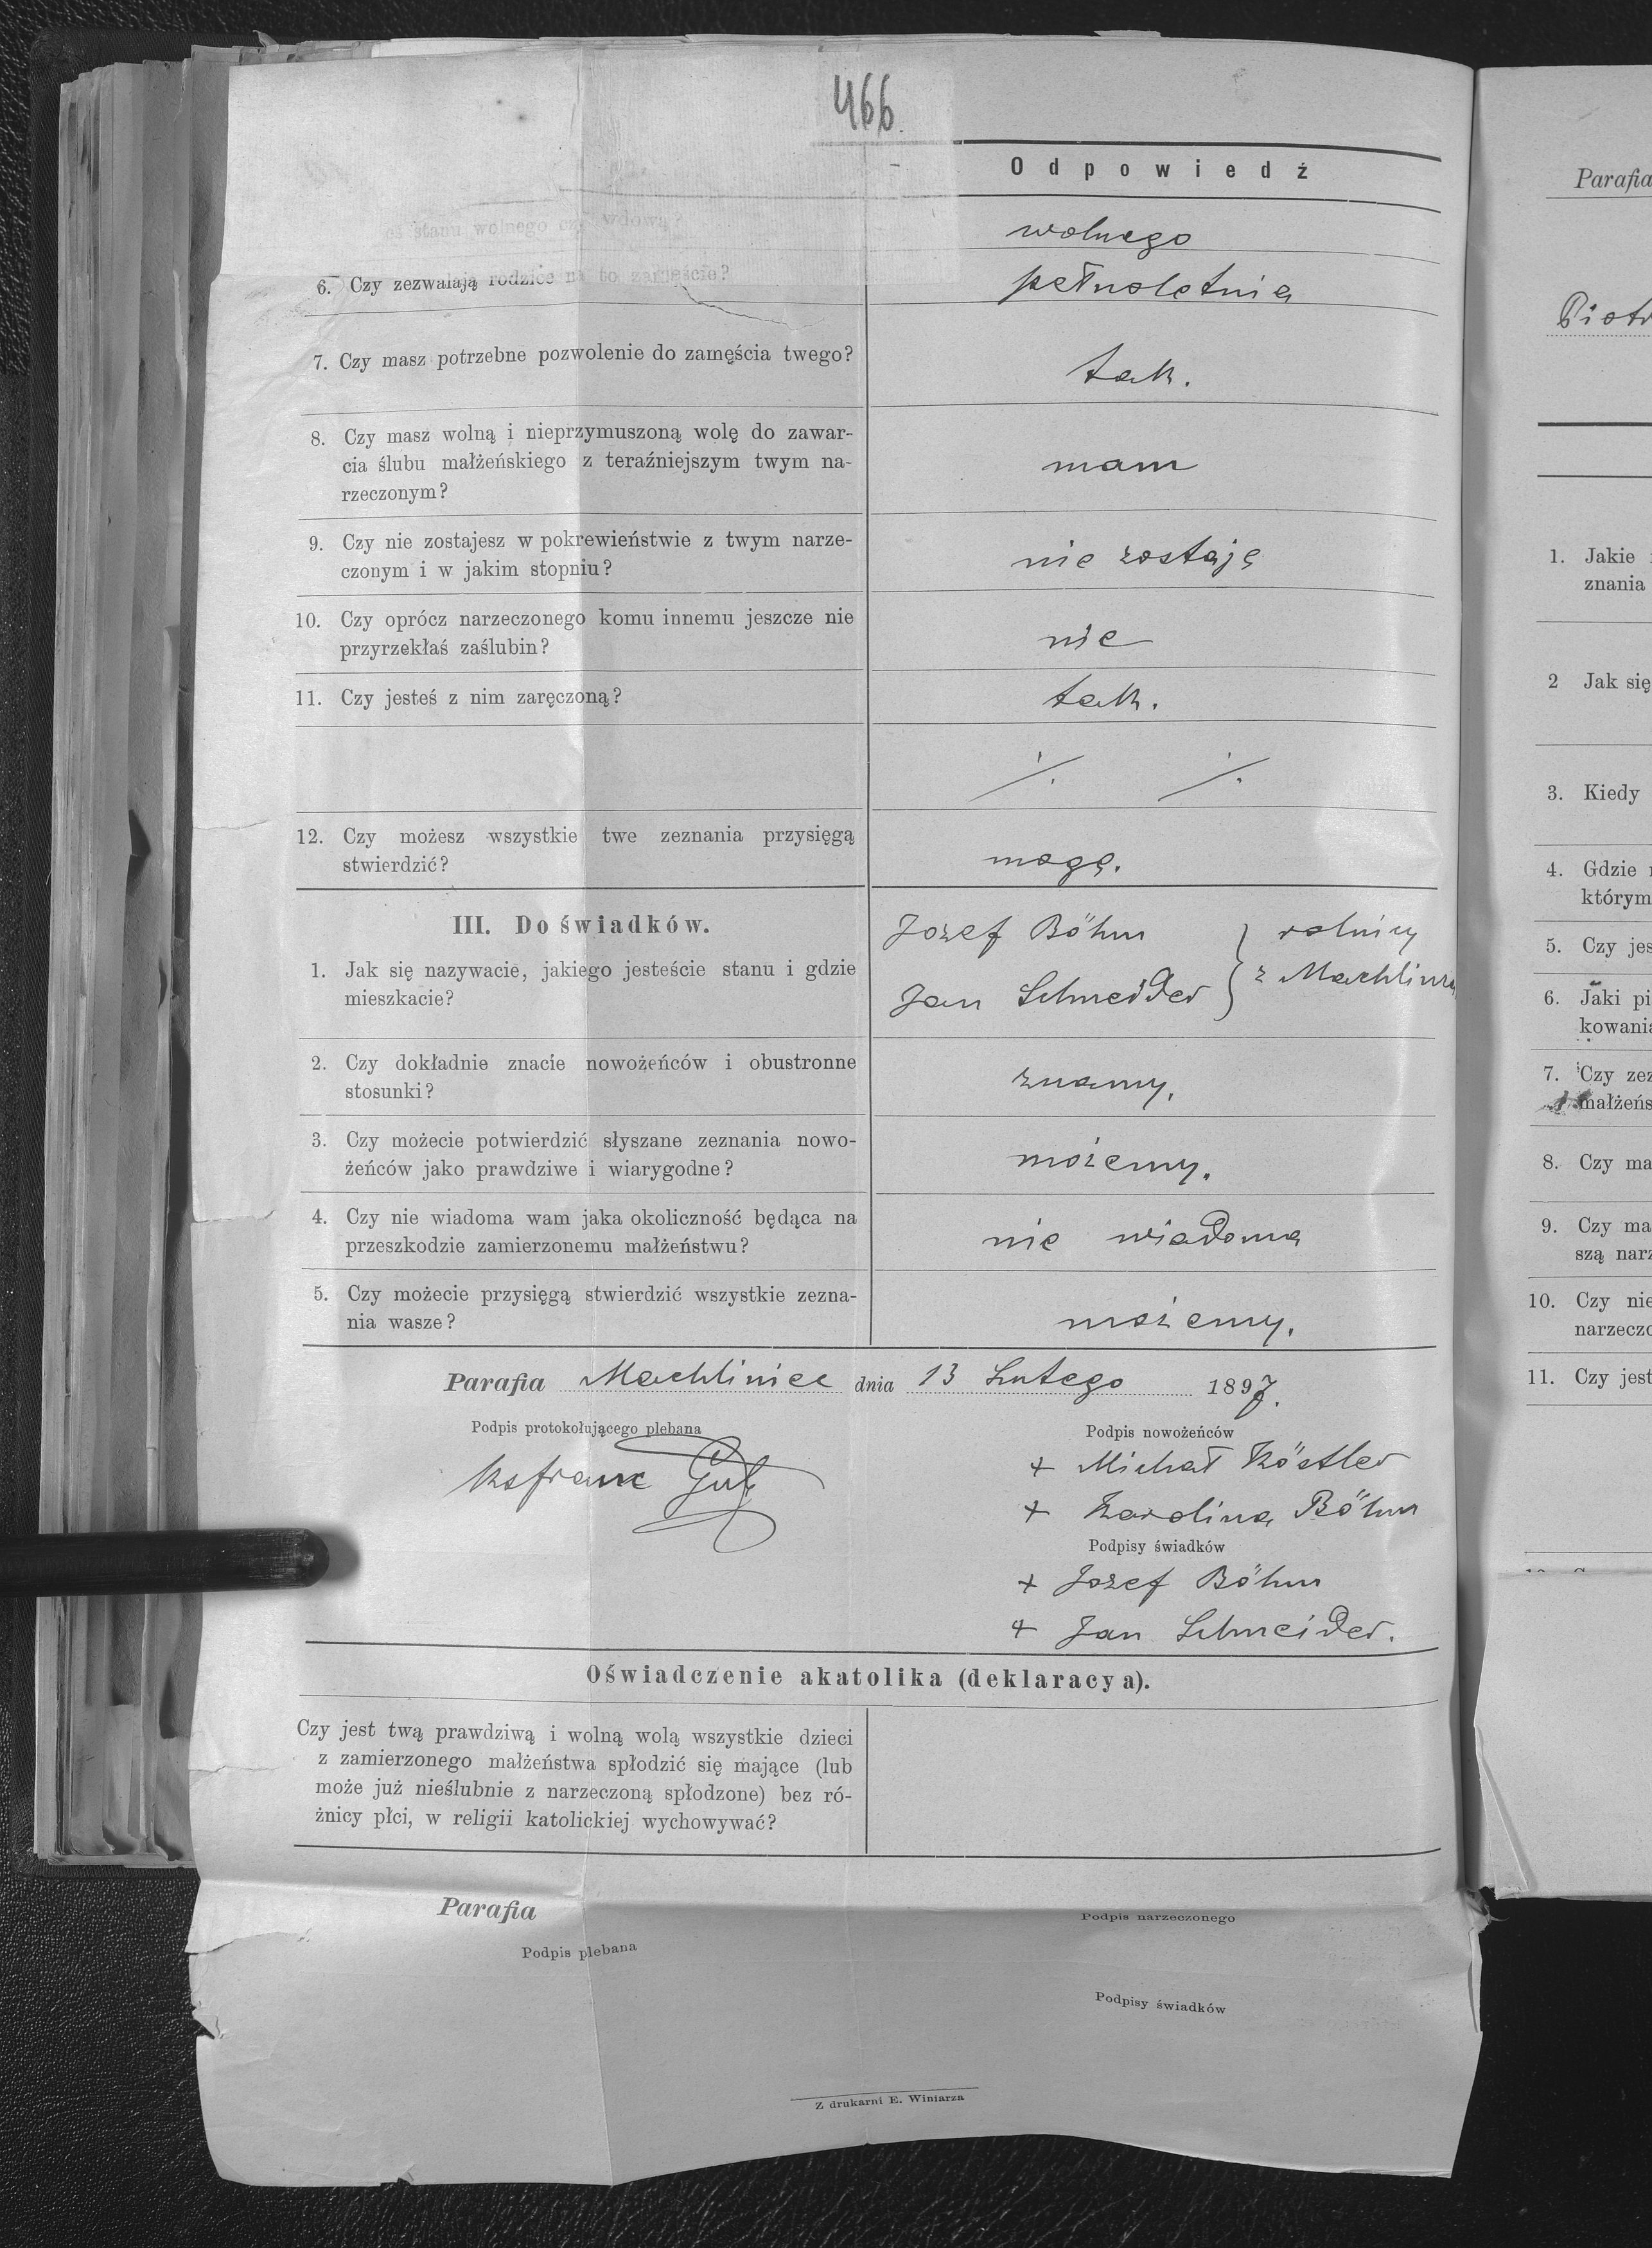 466.
Odpowiedź
eś stanu wolnego czy wdową? wolnego
6. Czy zezwalają rodzice na to zamęście? pełnoletnia
7. Czy masz potrzebne pozwolenie do zamęścia twego? tak.
8. Czy masz wolną i nieprzymuszoną wolę do zawar-
cia ślubu małżeńskiego z teraźniejszym twym na- mam
rzeczonym?
9. Czy nie zostajesz w pokrewieństwie z twym narze- nie zostaję
czonym i w jakim stopniu?
10. Czy oprócz narzeczonego komu innemu jeszcze nie nie
przyrzekłaś zaślubin?
11. Czy jesteś z nim zaręczoną? tak.
12. Czy możesz wszystkie twe zeznania przysięgą
stwierdzić? mogę.
III. Do świadków. Jozef Böhm } rolnicy
1. Jak się nazywacie, jakiego jesteście stanu i gdzie
mieszkacie? Jan Schneider } z Machlińca
2. Czy dokładnie znacie nowożeńców i obustronne
stosunki? znamy.
3. Czy możecie potwierdzić słyszane zeznania nowo-
żeńców jako prawdziwe i wiarygodne? możemy.
4. Czy nie wiadoma wam jaka okoliczność będąca na
przeszkodzie zamierzonemu małżeństwu? nie wiadoma
5. Czy możecie przysięgą stwierdzić wszystkie zezna-
nia wasze? możemy.
Parafia Machliniec dnia 13 Lutego 1897.
Podpis protokołującego plebana
Podpis nowożeńców
+ Michał Köstler
+ Karolina Böhm
Podpisy świadków
+ Jozef Böhm
+ Jan Schneider.
Oświadczenie akatolika (deklaracya).
Czy jest twą prawdziwą i wolną wolą wszystkie dzieci
z zamierzonego małżeństwa spłodzić się mające (lub
może już nieślubnie z narzeczoną spłodzone) bez ró-
żnicy płci, w religii katolickiej wychowywać?
Parafia
Podpis plebana
Podpis narzeczonego
Podpisy świadków
Z drukarni E. Winiarza
Parafia
Piotr
1. Jakie
znania
2 Jak się
3. Kiedy
4. Gdzie
którym
5. Czy jes
6. Jaki pi
kowania
7. Czy zez
małżeńs
8. Czy ma
9. Czy ma
szą narz
10. Czy nie
narzeczo
11. Czy jest